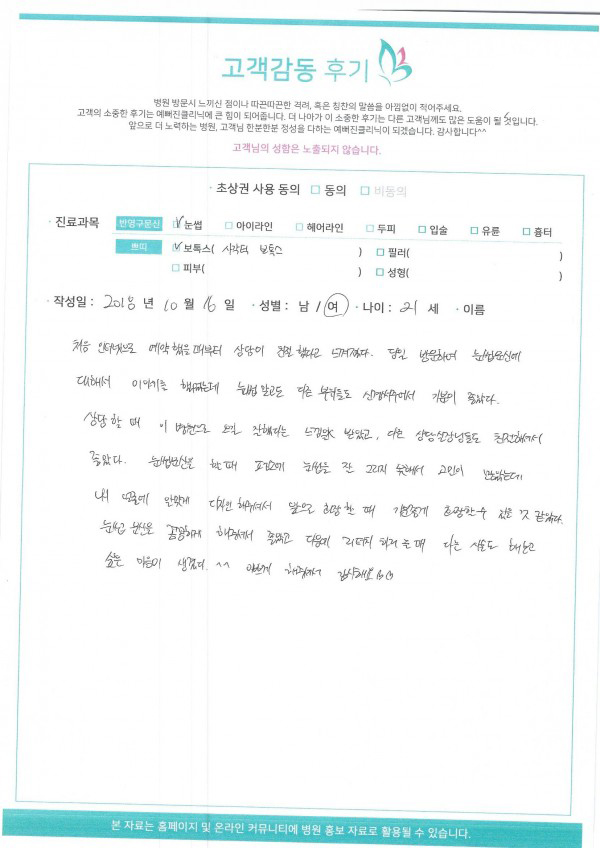 고객감동 후기
병원 방문시 느끼신 점이나 따끈따끈한 격려, 혹은 칭찬의 말씀을 아낌없이 적어주세요.
고객의 소중한 후기는 예뻐진클리닉에 큰 힘이 되어줍니다. 더 나아가 이 소중한 후기는 다른 고객님께도 많은 도움이 될 것입니다.
앞으로 더 노력하는 병원, 고객님 한분한분 정성을 다하는 예뻐진클리닉이 되겠습니다. 감사합니다^^
고객님의 성함은 노출되지 않습니다.
· 초상권 사용 동의 □ 동의 □ 비동의
· 진료과목 반영구문신 ☑ 눈썹 □ 아이라인 □ 헤어라인 □ 두피 □ 입술 □ 유륜 □ 흉터
쁘띠 ☑ 보톡스( 사각턱 보톡스 ) □ 필러( )
□ 피부( ) □ 성형( )
· 작성일 : 2018 년 10 월 16 일 · 성별 : 남 / 여 · 나이 : 21 세 · 이름
처음 인터넷으로 예약했을 때부터 상담이 친절했다고 느껴졌다. 당일 방문하여 눈썹문신에
대해서 이야기를 했었는데 눈썹 말고도 다른 부위들도 신경써주셔서 기분이 좋았다.
상담할 때 이 병원으로 오길 잘했다는 느낌을 받았고, 다른 상담실장님들도 친절하셔서
좋았다. 눈썹문신을 할 때 평소에 눈썹을 잘 그리지 못해서 고민이 많았는데
내 얼굴에 알맞게 디자인 해주셔서 앞으로 화장할 때 기분좋게 화장할 수 있을 것 같았다.
눈썹 문신을 꼼꼼하게 해주셔서 좋았고 다음에 리터치 하러 올 때 다른 시술도 해보고
싶은 마음이 생겼다. ^^ 이쁘게 해주셔서 감사해요
본 자료는 홈페이지 및 온라인 커뮤니티에 병원 홍보 자료로 활용될 수 있습니다.